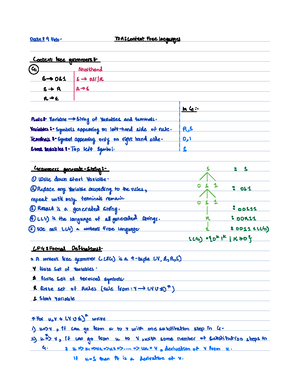 TOA: Context Free Languages
Context free grammars:-
G₁ Shorthand
S → 0S1 S → 0S1/R
S → R R → ε
R → ε
In G₁:-
Rules: Variable → String of variables and terminals.
Variables:- Symbols appearing on left-hand side of rule. R,S
Terminals:- Symbols appearing only on right hand side. 0,1
Start Variable:- Top left symbol. S
Grammars generate strings:-
① Write down start variable.
② Replace any variable according to the rules,
repeat until only terminals remain
③ Result is a generated string.
④ L(G) is the language of all generated strings.
⑤ We call L(G) a context free language.
S
0 S 1
0 S 1
R
ε
S
0S1
00S11
00R11
L(G₁) = {0ᵏ1ᵏ | K≥0}
CFG: Formal Definition:-
A context free grammar (CFG) is a 4-tuple (V, Σ, R, S)
V finite set of variables
Σ finite set of terminal symbols
R finite set of rules (rule form: V → (V ∪ Σ)*)
S start variable
For u,v ∈ (V ∪ Σ)* write
1) u ⇒ v, if can go from u to v with one substitution step in G.
2) u ⇒* v, if can go from u to v with some number of substitution steps in G.